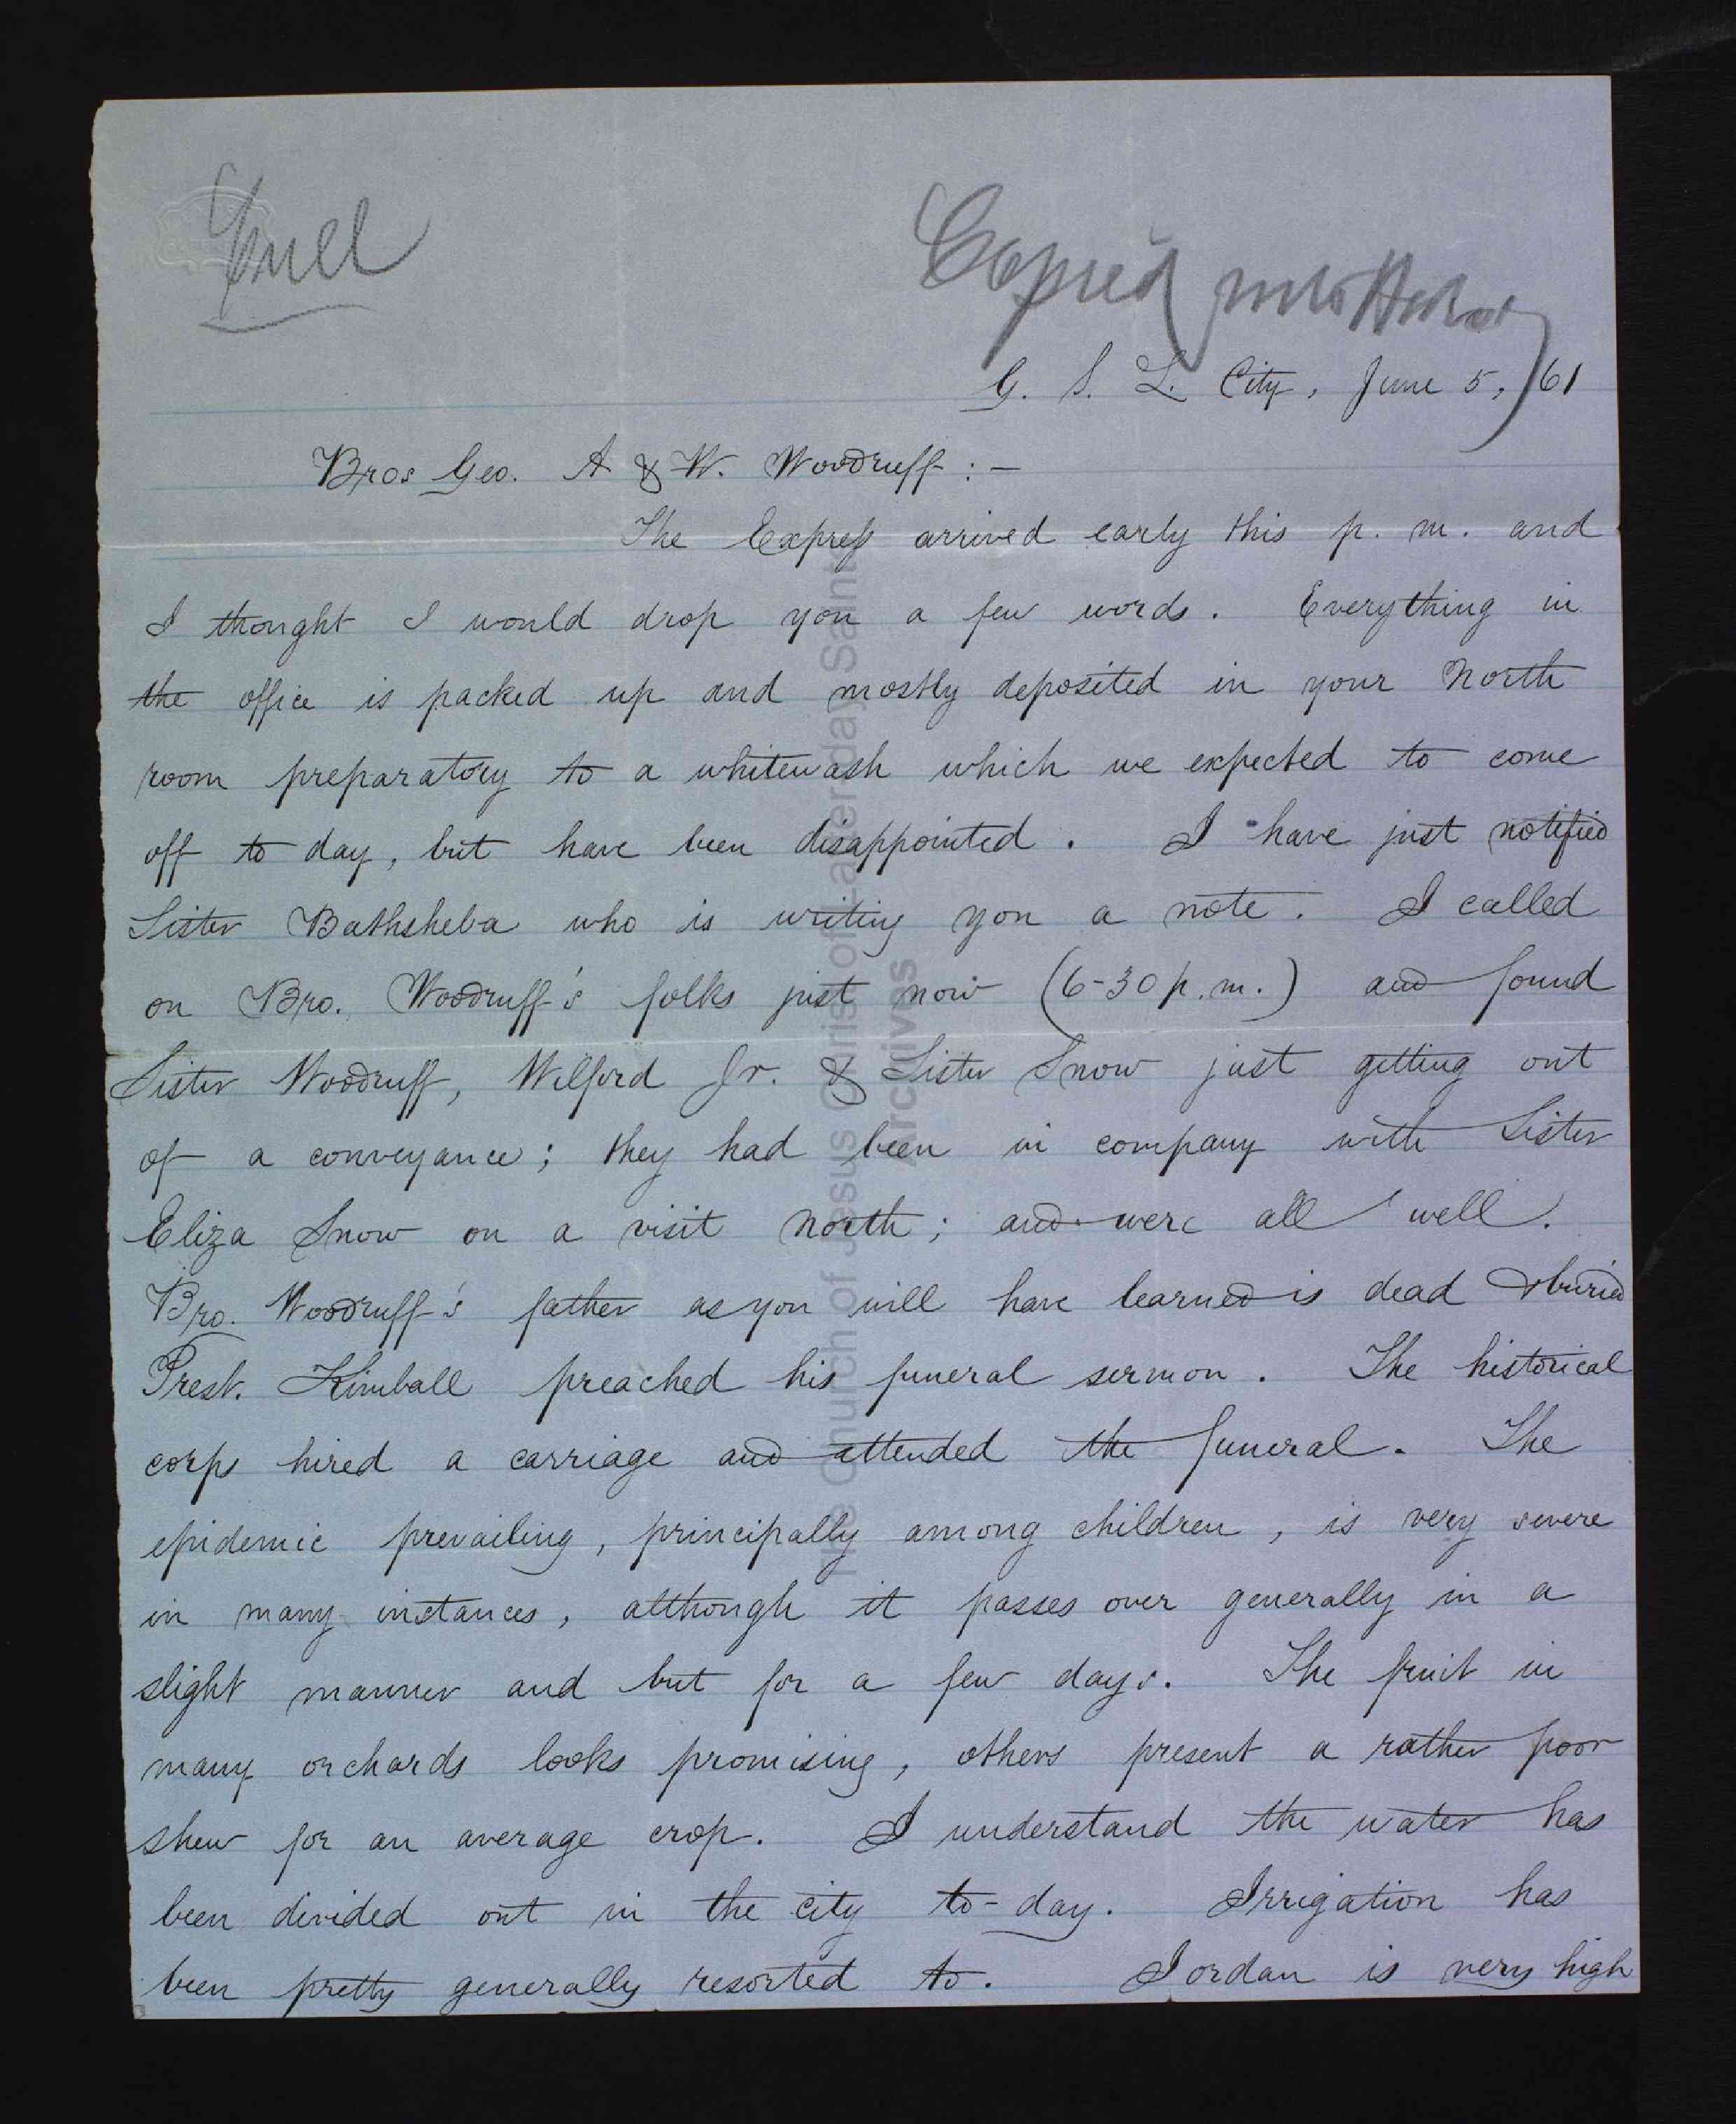 Copied into
G. S. L. City, June 5, /61
Bros Geo. A & W. Woodruff : —
The Express arrived early this p. m. and
I thought I would drop you a few words. Everything in
the office is packed up and mostly deposited in your North
room preparatory to a whitewash which we expected to come
off to day, but have been disappointed. I have just notified
Sister Bathsheba who is writing you a note. I called
on Bro. Woodruff's folks just now (6-30 p. m.) and found
Sister Woodruff, Wilford Jr. & Sister Snow just getting out
of a conveyance; they had been in company with Sister
Eliza Snow on a visit North; and were all well.
Bro. Woodruff's father as you will have learned is dead & buried
Prest. Kimball preached his funeral sermon. The historical
corps hired a carriage and attended the funeral. The
epidemic prevailing, principally among children, is very severe
in many instances, although it passes over generally in a
slight manner and but for a few days. The fruit in
many orchards looks promising, others present a rather poor
shew for an average crop. I understand the water has
been divided out in the city to-day. Irrigation has
been pretty generally resorted to. Jordan is very high
The Church of Jesus Christ of Latter-day Saints
Archives